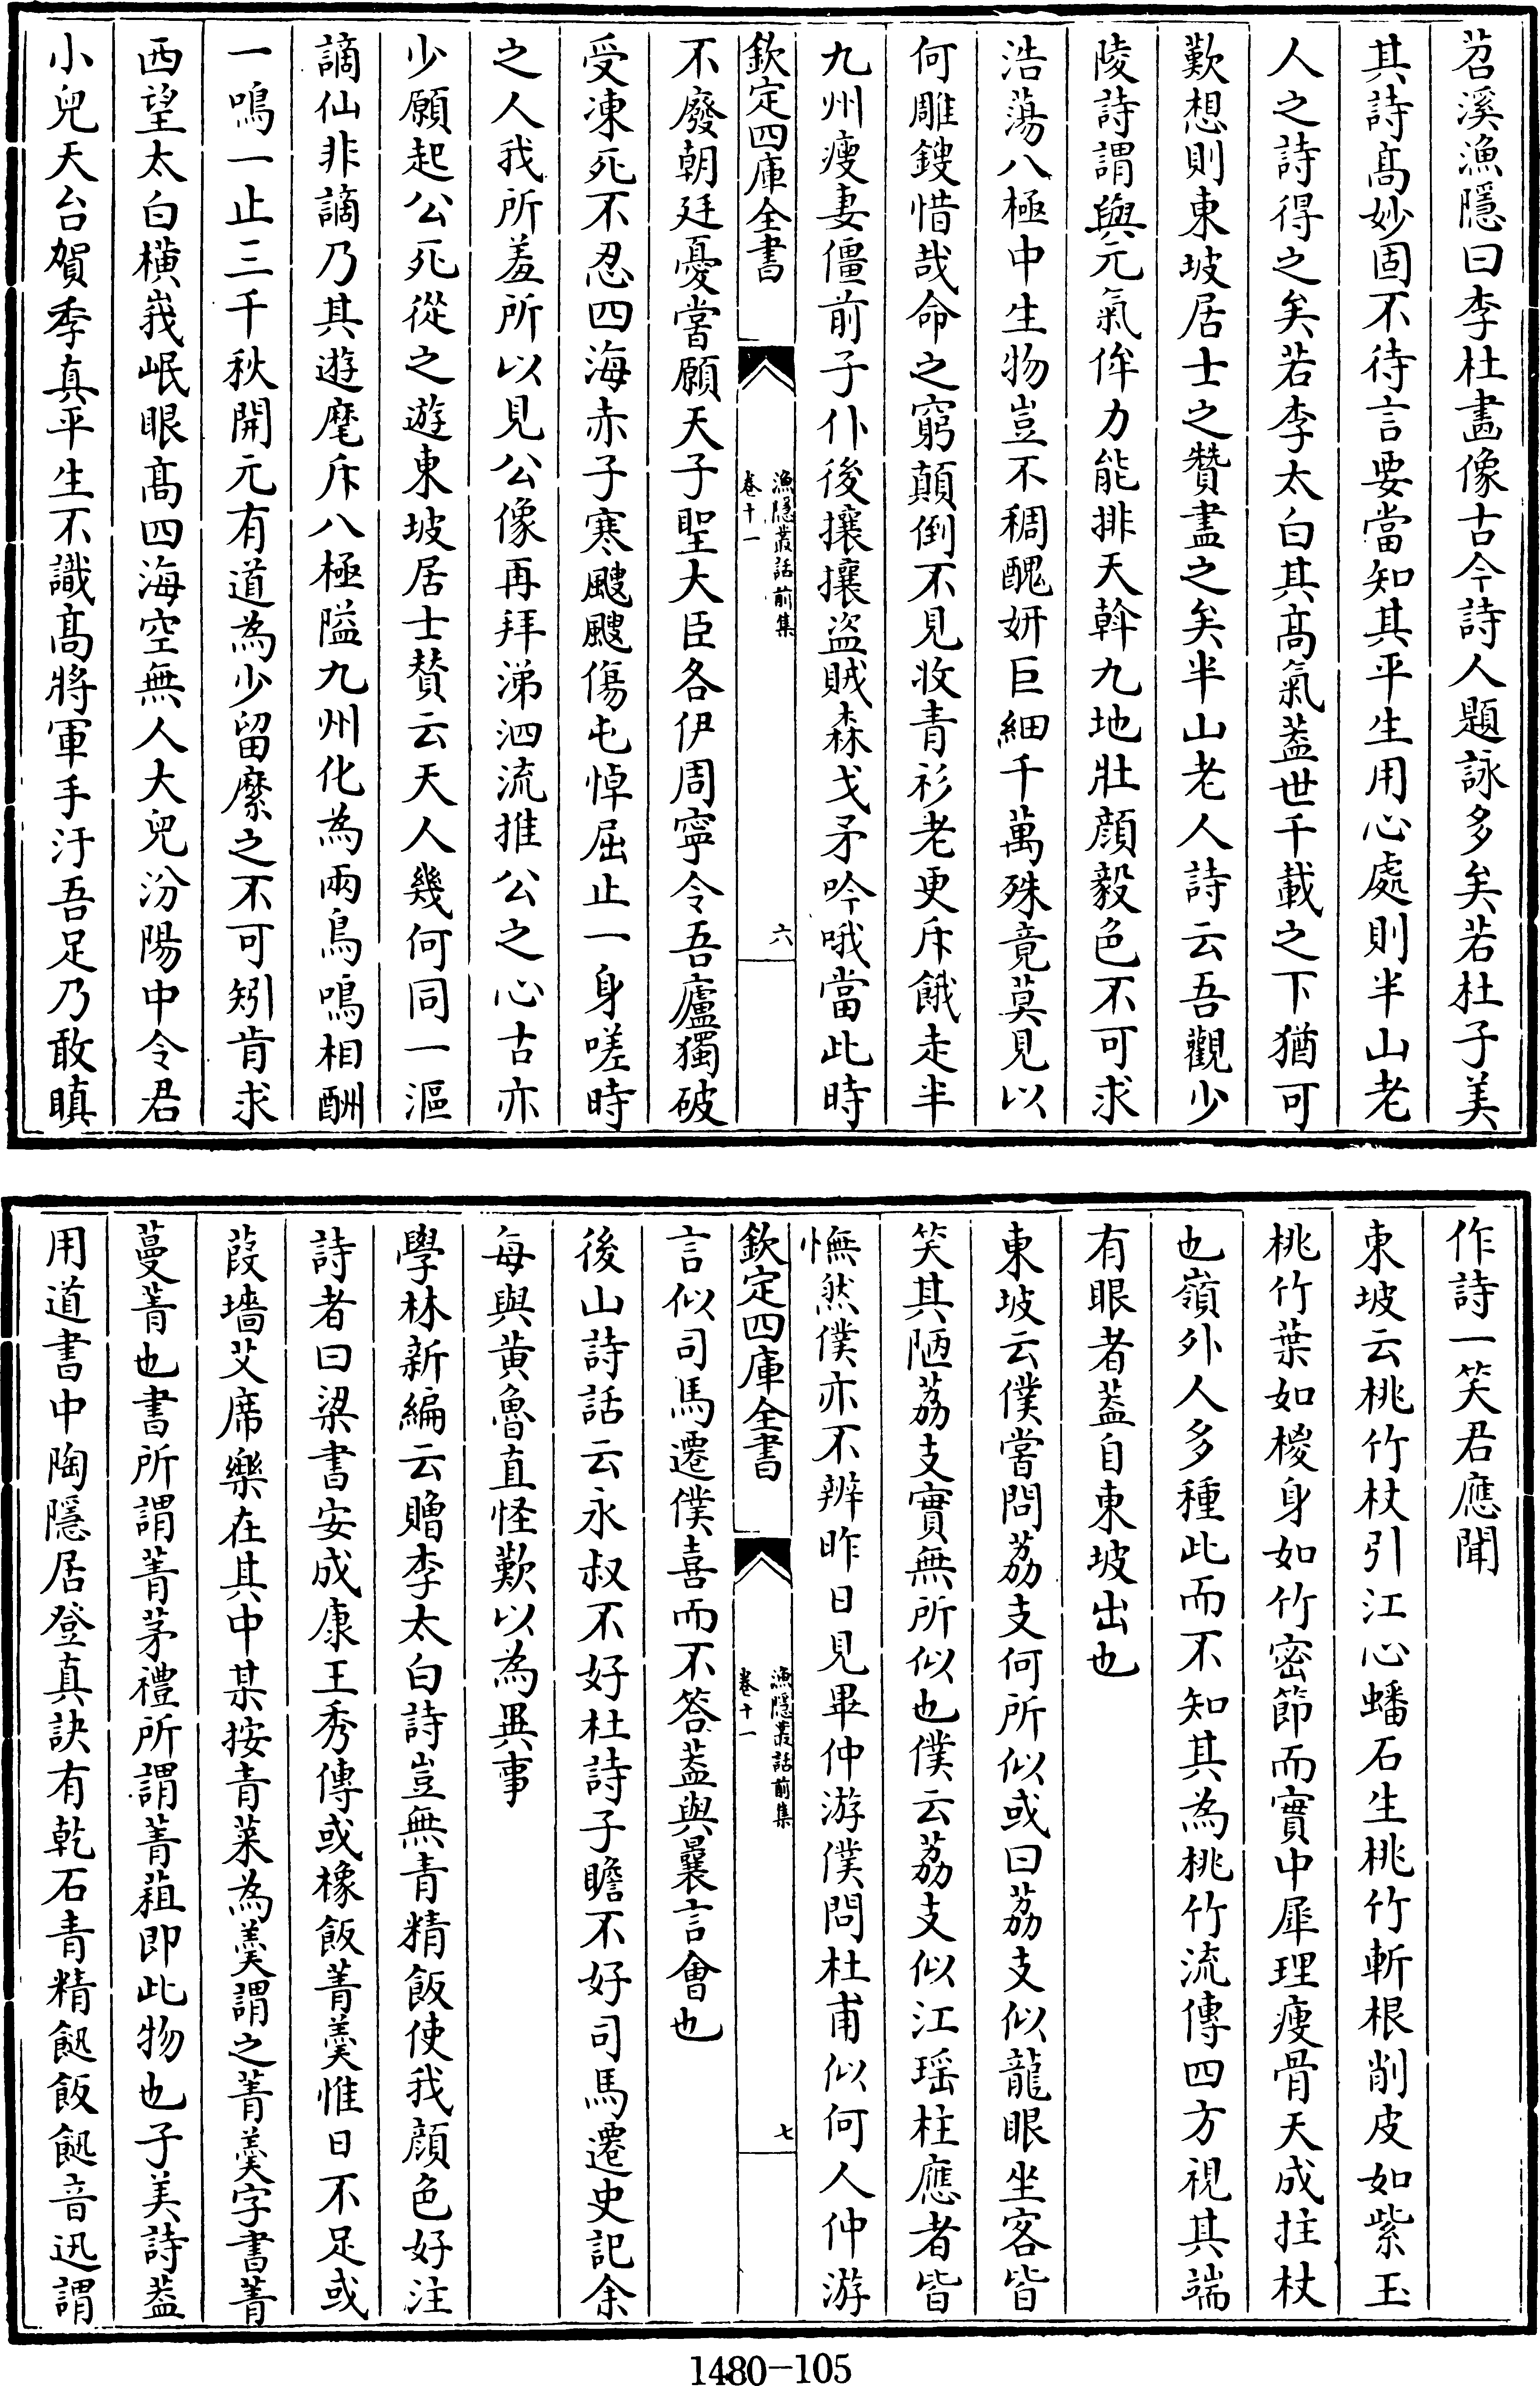 苕溪漁隱曰李杜畫像古今詩人題詠多矣若杜子美
其詩髙妙固不待言要當知其平生用心處則半山老
人之詩得之矣若李太白其髙氣葢世千載之下猶可
歎想則東坡居士之贊盡之矣半山老人詩云吾觀少
陵詩謂與元氣侔力能排天斡九地壯顔毅色不可求
浩蕩八極中生物豈不稠醜妍巨細千萬殊竟莫見以
何雕鎪惜哉命之窮顛倒不見收青衫老更斥餓走半
九州瘦妻僵前子仆後攘攘盜賊森戈矛吟哦當此時
欽定四庫全書
漁隱叢話前集
卷十一
六
不廢朝廷憂嘗願天子聖大臣各伊周寧令吾廬獨破
受凍死不忍四海赤子寒颼颼傷屯悼屈止一身嗟時
之人我所羞所以見公像再拜涕泗流推公之心古亦
少願起公死從之遊東坡居士賛云天人幾何同一漚
謫仙非謫乃其遊麾斥八極隘九州化為兩鳥鳴相酬
一鳴一止三千秋開元有道為少留縻之不可矧肯求
西望太白橫峩岷眼髙四海空無人大兒汾陽中令君
小兒天台賀季真平生不識髙將軍手汙吾足乃敢瞋
作詩一笑君應聞
東坡云桃竹杖引江心蟠石生桃竹斬根削皮如紫玉
桃竹葉如椶身如竹密節而實中犀理瘦骨天成拄杖
也嶺外人多種此而不知其為桃竹流傳四方視其端
有眼者葢自東坡出也
東坡云僕嘗問茘支何所似或曰茘支似龍眼坐客皆
笑其陋茘支實無所似也僕云茘支似江瑶柱應者皆
憮然僕亦不辨昨日見畢仲游僕問杜甫似何人仲游
欽定四庫全書
漁隱叢話前集
卷十一
七
言似司馬遷僕喜而不答葢與曩言會也
後山詩話云永叔不好杜詩子瞻不好司馬遷史記余
每與黄魯直怪歎以為異事
學林新編云贈李太白詩豈無青精飯使我顔色好注
詩者曰梁書安成康王秀傳或橡飯菁羹惟日不足或
葭墻艾席樂在其中某按青菜為羹謂之菁羹字書菁
蔓菁也書所謂菁茅禮所謂菁葅即此物也子美詩葢
用道書中陶隱居登真訣有乾石青精䭀飯䭀音迅謂
1480-105